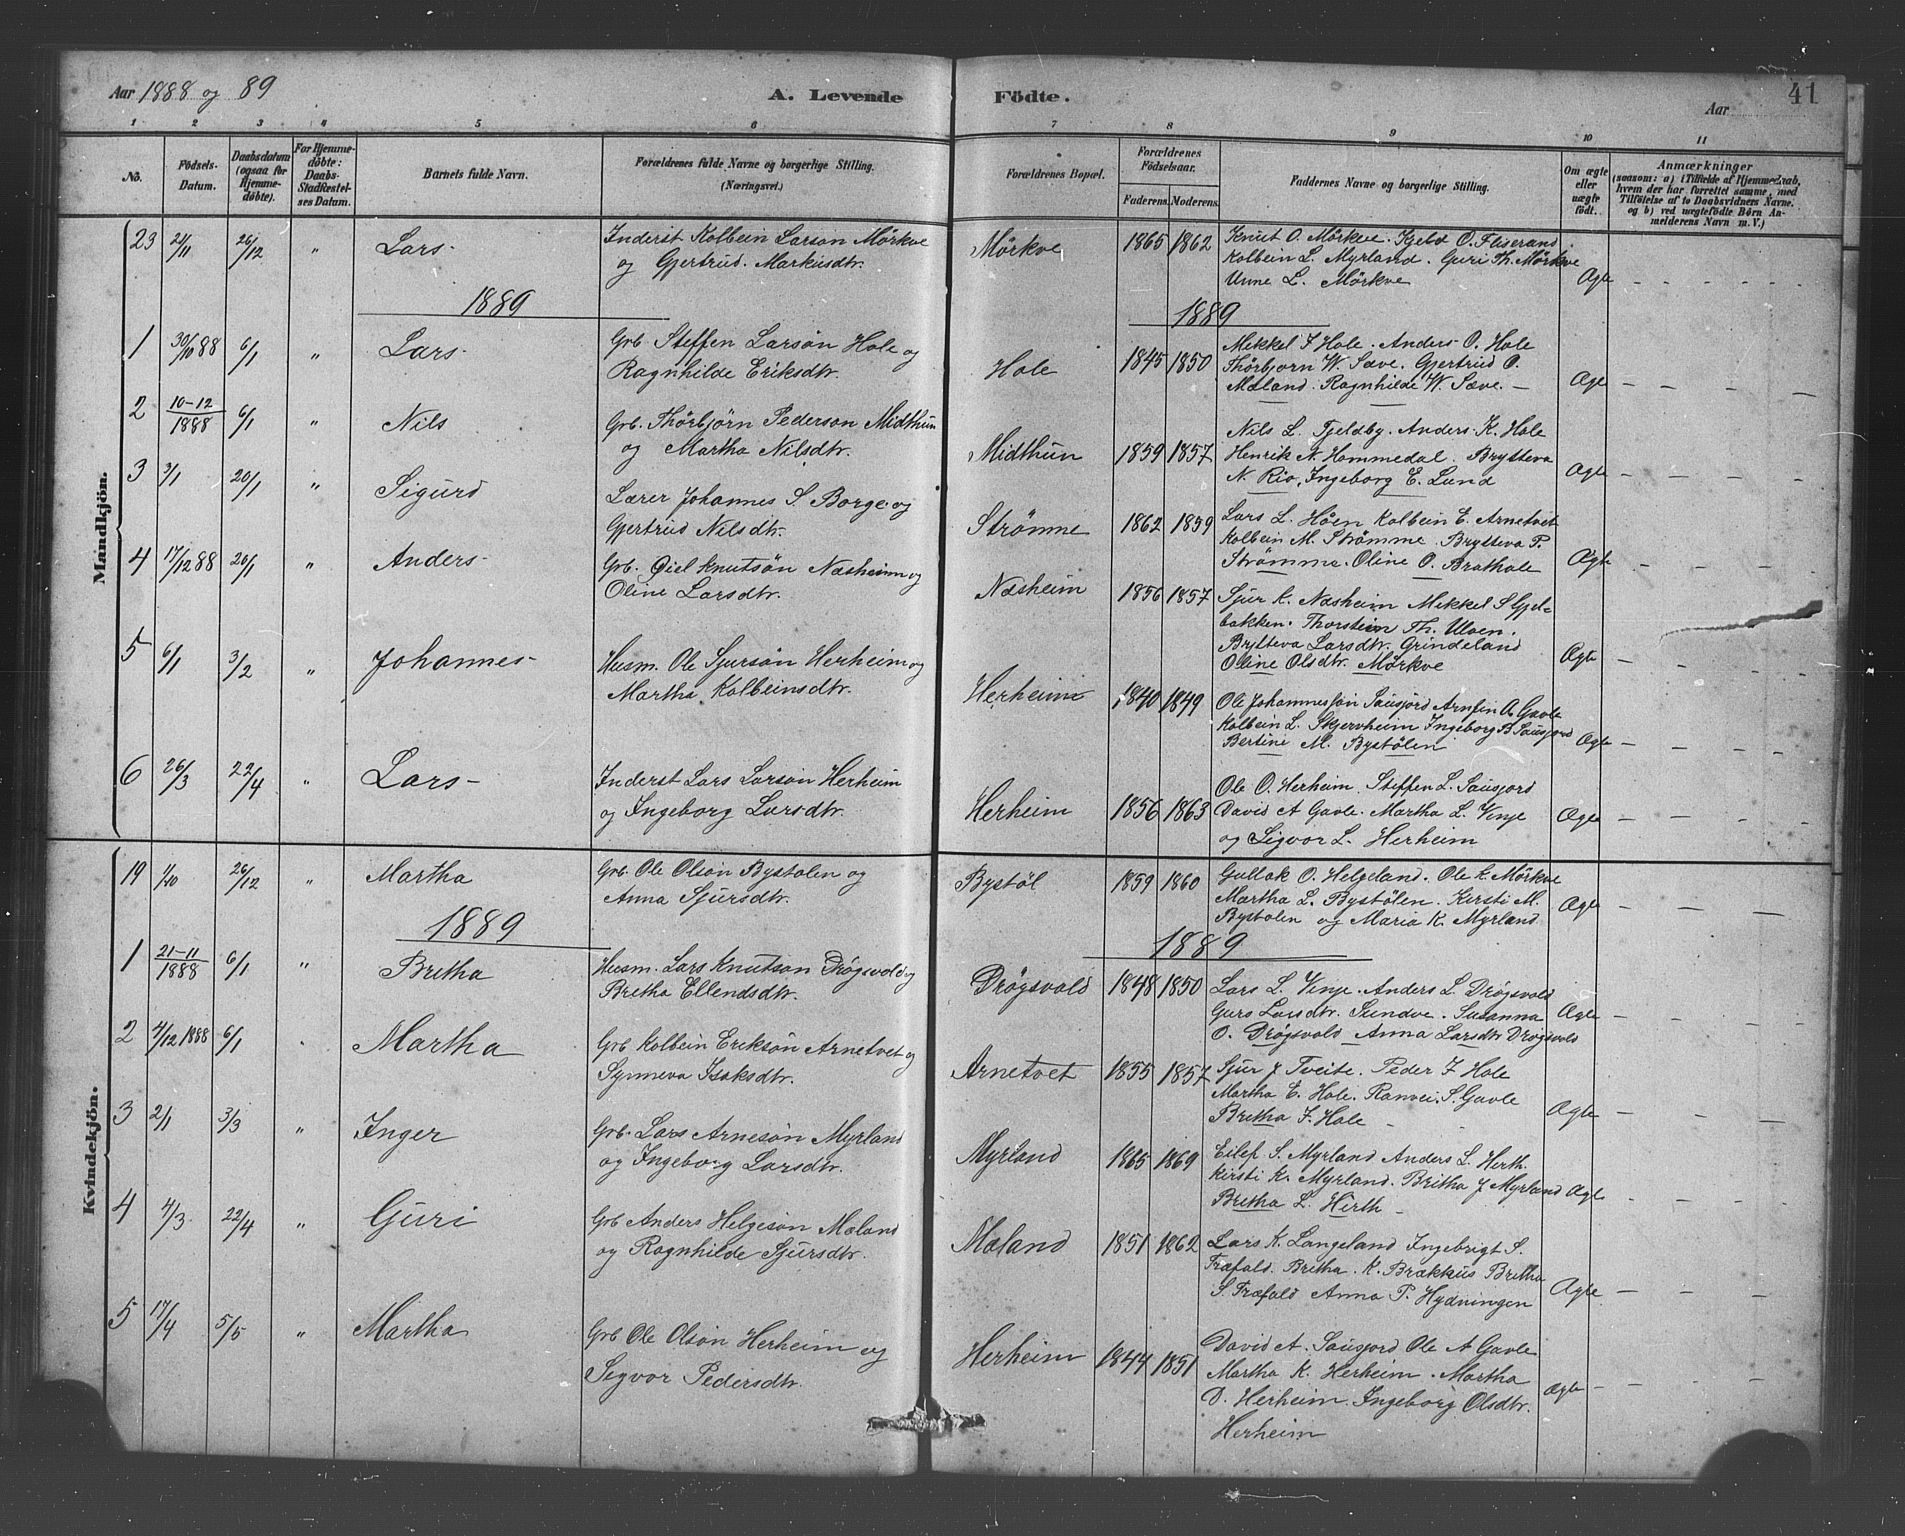 Aar 1888 og 89
A. Levende Födte.
Aar
41
1 2 3 4 5 6 7 8 9 10 11
No.
Födsels-Datum.
Daabsdatum (ogsaa for Hjemmedöbte).
For Hjemmedöbte: Daabs-Stadfæstelses Datum.
Barnets fulde Navn.
Forældrenes fulde Navne og borgerlige Stilling.
(Næringsvei.)
Forældrenes Bopæl.
Forældrenes Födselsaar.
Faderens. Moderens.
Faddernes Navne og borgerlige Stilling.
Om ægte eller uægte födt.
Anmærkninger
(saasom: a) i Tilfælde af Hjemmedaab, hvem der har forrettet samme, med Tilföielse af to Daabsvidners Navne. og b) ved uægtefödte Børn Anmelderens Navn m. V.)
Mandkjön.
23 21/11 26/12 " Lars- Inderst Kolbein Larson Mörkve
og Gjertrud. Markusdtr. Mörkve 1865 1862
Knut O. Mörkve. Kjeld O. Fliserand
Kolbein L. Myrland. Guri Th. Mörkve
Unne L. Mörkve Ægte
1889
1889
1 30/10 88 6/1 " Lars- Grb. Steffen Larsön Hole og
Ragnhilde Eriksdtr. Hole 1845 1850
Mikkel J Hole. Anders O. Hole
Thörbjorn W. Sæve. Gjertrud O.
Mæland. Ragnhilde W. Sæve. - Ægte
2 10-12 1888 6/1 " Nils Grb. Thörbjörn Pederson Midthun
og Martha Nilsdtr. Midthun 1859 1857
Nils L. Tjeldby. Anders K. Hole
Henrik N. Hommedal. Brytteva
N. Rio, Ingeborg E. Lund Ægte
3 3/1 20/1 " Sigurd Lærer Johannes S. Borge og
Gjertrud Nilsdtr. Strömme 1862 1859
Lars L. Höen Kolbein E. Arnetvet
Kolbein M. Strömme. Brytteva P.
Strömme. Oline O. Brathole Ægte
4 17/12 88 20/1 " Anders- Grb. Knutsön Næsheim og
Oline Larsdtr. Næsheim 1856 1857
Sjur K. Næsheim Mikkel S Gjel-
bakken. Thorstein Th. Ulven.
Brytteva Larsdtr. Grindeland
Oline Olsdtr. Mörkve Ægte
5 6/1 3/2 " Johannes- Husm. Ole Sjursön Herheim og
Martha Kolbeinsdtr. Herheim 1840 1849
Ole Johannesson Sausjord Arnfin A. Gavle
Kolbein L. Skjervheim Ingeborg B. Sausjord
Bertine M. Bystölen Ægte
6 26/3 22/4 " Lars- Inderst Lars Larson Herheim
og Ingeborg Larsdtr. Herheim 1856 1863
Ole O. Herheim. Steffen L. Sausjord
David A Gavle. Martha L. Vinje
og Sigvor L. Herheim Ægte
Kvindekjön.
19 1/10 26/12 " Martha Grb. Ole Olsön Bystolen og
Anna Sjursdtr. Bystöl 1859 1860
Gullak O. Helgeland. Ole K. Mörkve
Martha L. Bystölen. Kirsti M.
Bystolen og Maria K. Myrland Ægte
1889
1889
1 21-11 1888 6/1 " Britha Husm. Lars Knutson Drögsvold og
Bretha Ellendsdtr. Drögsvold 1848 1850
Lars L. Vinje. Anders L. Drögsvold
Guro Larsdtr. Sundve. Susanna
O. Drögsvold Anna Larsdtr Drögsvold Ægte
2 4/12 1888 6/1 Martha Grb Kolbein Eriksön Arnetvet og
Synneva Isaksdtr. Arnetvet 1855 1857
Sjur J Tveite. Peder J Hole
Martha E. Hole. Ranvei. S. Gavle
Bretha J. Hole - Ægte
3 2/1 3/3 " Inger Grb. Lars Arnesön Myrland
og Ingeborg Larsdtr. Myrland 1865 1869
Eilef S. Myrland Anders L. Herth.
Kirsti K. Myrland. Britha J Myrland
Bretha L. Herth - Ægte
4 4/3 22/4 " Guri Grb Anders Helgeson Mæland
og Ragnhilde Sjursdtr. Mæland 1851 1862
Lars K. Langeland Ingebrigt S.
Træfald. Britha. K. Brækkus Britha
S. Træfald Anna P. Hydningen Ægte
5 17/4 5/5 " Martha Grb Ole Olsön Herheim og
Segvor Pedersdtr. Herheim 1844 1851
David A. Sausjord Ole A Gavle
Martha K. Herheim. Martha
D. Herheim. Ingeborg Olsdtr.
Herheim Ægte